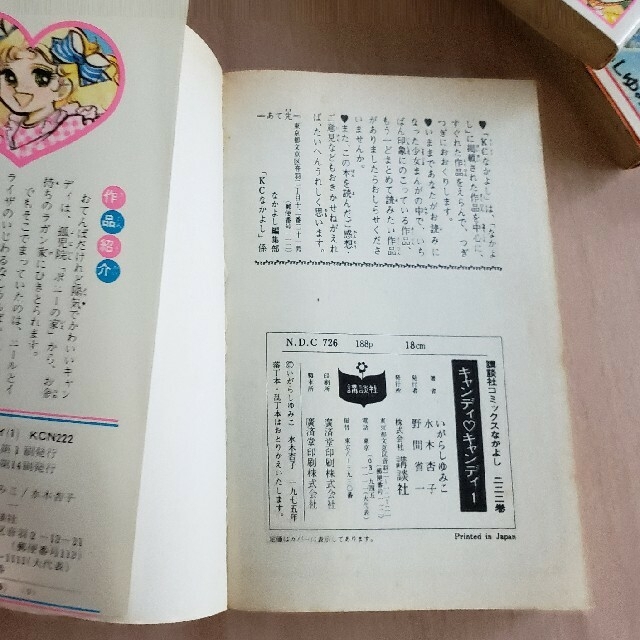 ♥「KCなかよし」は、「なかよし」に掲載された作品を中心に、すぐれた作品をえらんで、つぎつぎにおおくりします。
♥いままであなたがお読みになった少女まんがの中で、いちばん印象にのこっている作品、もう一どまとめて読みたい作品がありましたらおしらせくださいませんか。
♥また、この本を読んだご感想、ご意見などもおきかせねがえれば、たいへんうれしく思います。
あて先
東京都文京区音羽二丁目十二番二十一号
なかよし編集部
「KCなかよし」係
N.D.C 726 188p 18cm
講談社コミックスなかよし 二二二巻
キャンディ♡キャンディ 1
著者 いがらしゆみこ
水木杏子
発行者 野間省一
発行所 株式会社 講談社
講談社
印刷所 廣済堂印刷株式会社
製本所 廣済堂印刷株式会社
©いがらしゆみこ 水木杏子 一九七五年
落丁本・乱丁本はおとりかえいたします。
定価はカバーに表示してあります。
Printed in Japan
作品紹介
おてんばだけれど陽気でかわいいキャン
ディは、孤児院『ポニーの家』から、お金
持ちのラガン家にひきとられます。
でもそこでまっていたのは、ニールとイ
ライザの
(1) KCN222
刷発行
第14刷発行
みこ/水木杏子
2-12-21
(郵便番号112)
(大代表)